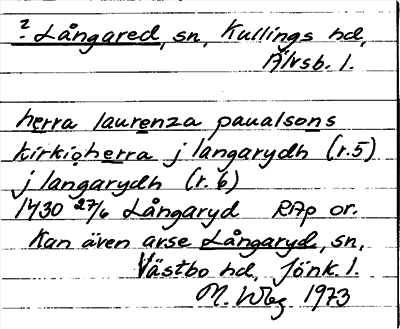 ? Långared, sn, Kullings hd,
Älvsb. l.
herra laurenza paualsons
kirkioherra j langarydh (r.5)
j langarydh (r. 6)
1430 27/6 Långaryd RAp or.
Kan även avse Långaryd, sn,
Västbo hd, Jönk. l.
M. Wbg 1973